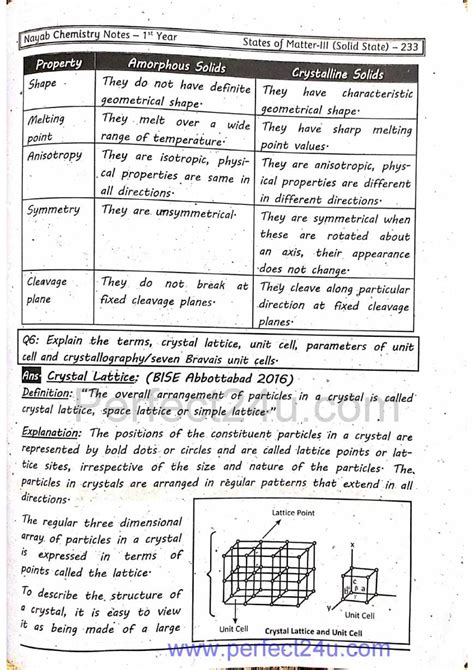 Nayab Chemistry Notes – 1st Year
States of Matter-III (Solid State) – 233
Property
Amorphous Solids
Crystalline Solids
Shape
They do not have definite
geometrical shape.
They have characteristic
geometrical shape.
Melting
point
They melt over a wide
range of temperature.
They have sharp melting
point values.
Anisotropy
They are isotropic, physi-
cal properties are same in
all directions.
They are anisotropic, phys-
ical properties are different
in different directions.
Symmetry
They are unsymmetrical.
They are symmetrical when
these are rotated about
an axis, their appearance
does not change.
Cleavage
plane
They do not break at
fixed cleavage planes.
They cleave along particular
direction at fixed cleavage
planes.
Q6: Explain the terms, crystal lattice, unit cell, parameters of unit
cell and crystallography/seven Bravais unit cells.
Ans: Crystal Lattice: (BISE Abbottabad 2016)
Definition: "The overall arrangement of particles in a crystal is called
crystal lattice, space lattice or simple lattice."
Perfect24u.com
Explanation: The positions of the constituent particles in a crystal are
represented by bold dots or circles and are called lattice points or lat-
tice sites, irrespective of the size and nature of the particles. The
particles in crystals are arranged in regular patterns that extend in all
directions.
The regular three dimensional
array of particles in a crystal
is expressed in terms of
points called the lattice.
To describe the structure of
a crystal, it is easy to view
it as being made of a large
Lattice Point
x
c
a
y
Unit Cell
Unit Cell
Crystal Lattice and Unit Cell
www.perfect24u.com